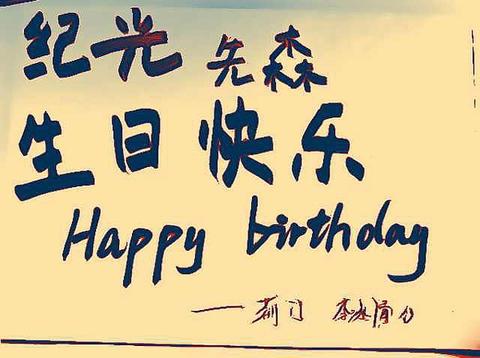 纪光 先森
生日快乐
Happy birthday
——荊门